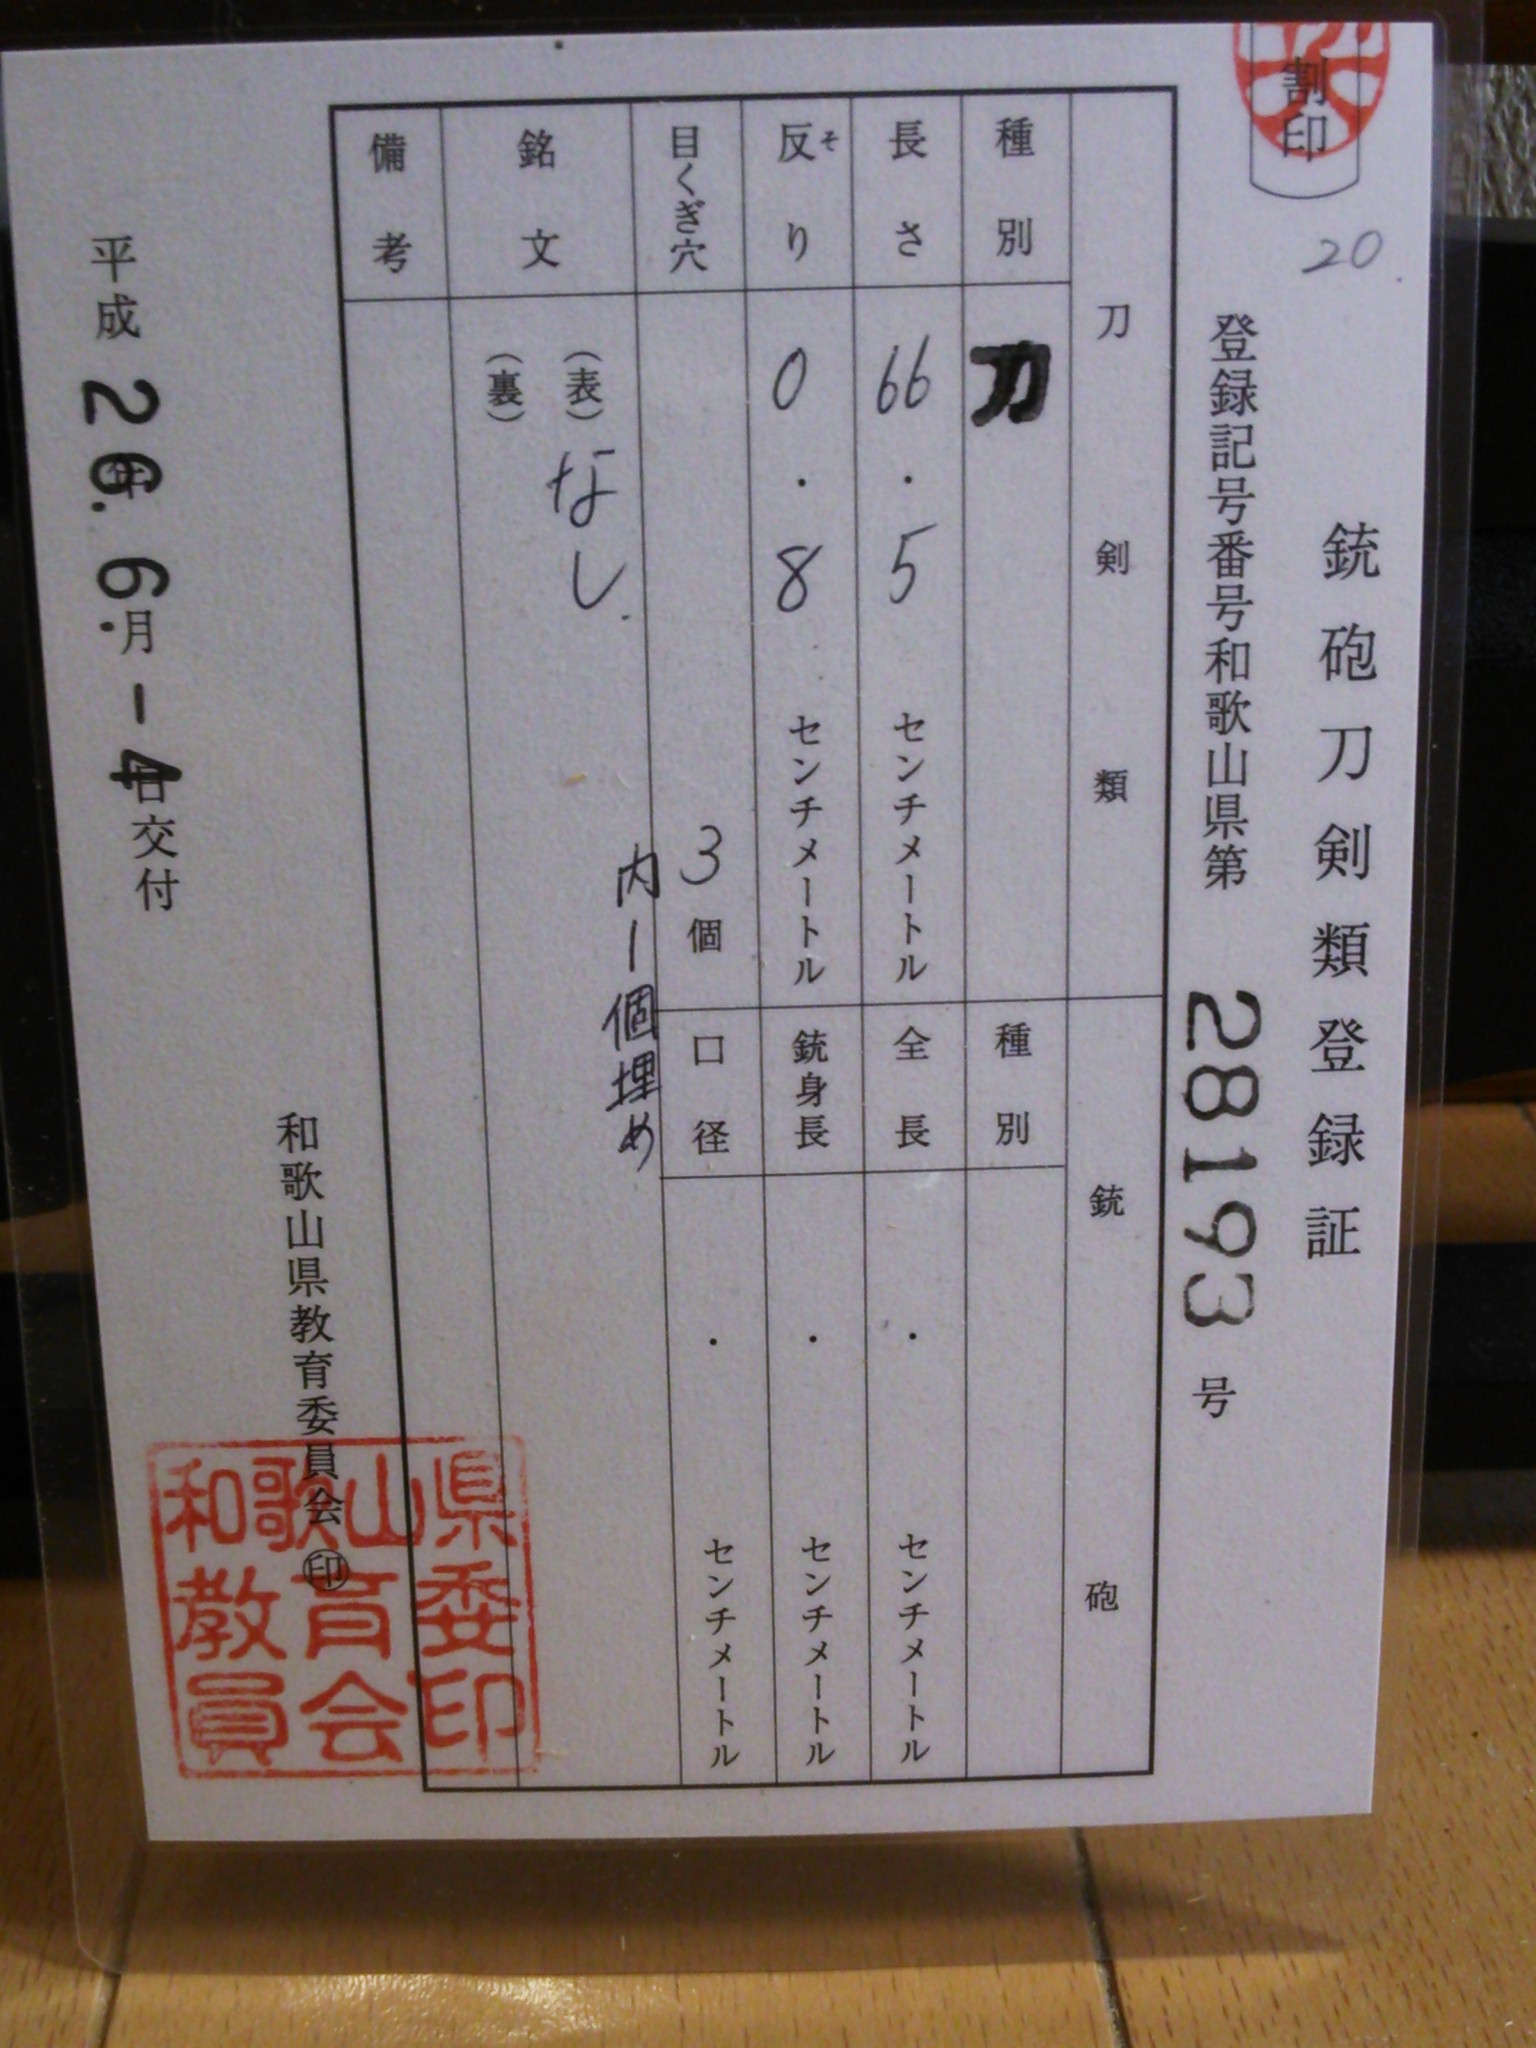 割印
20
銃砲刀剣類登録証
登録記号番号和歌山県第 28193 号
刀剣類
銃砲
種別 刀
種別
長さ 66.5 センチメートル
全長 . センチメートル
反り 0.8 センチメートル
そ
銃身長 . センチメートル
目くぎ穴 3個
内1個埋め
口径 . センチメートル
銘文 (表) なし
(裏)
備考
平成 26年 6月 -4日交付
和歌山県教育委員会 印
和歌山県
教育委
員会印